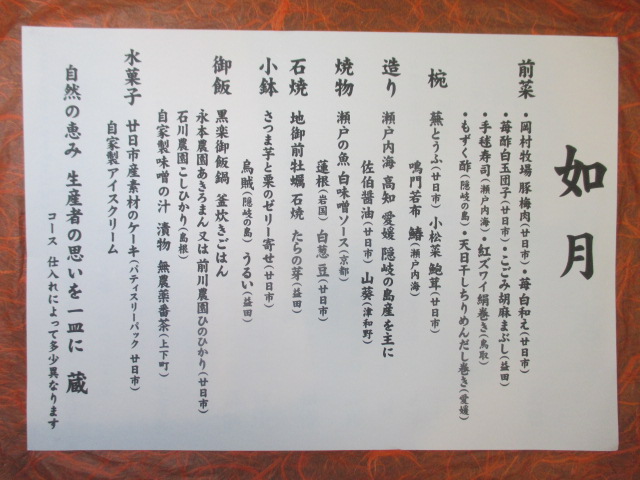 如月
前菜 ・岡村牧場 豚梅肉(廿日市)・苺 白和え(廿日市)
・苺酢白玉団子(廿日市)・こごみ胡麻まぶし(益田)
・手毬寿司(瀬戸内海)・紅ズワイ絹巻き(鳥取)
・もずく酢(隠岐の島)・天日干しちりめんだし巻き(愛媛)
椀 蕪とうふ(廿日市) 小松菜 鮑茸(廿日市)
鳴門若布 鰆(瀬戸内海)
造り 瀬戸内海 高知 愛媛 隠岐の島産を主に
佐伯醤油(廿日市) 山葵(津和野)
焼物 瀬戸の魚 白味噌ソース(京都)
蓮根(岩国) 白葱 豆(廿日市)
石焼 地御前牡蠣 石焼 たらの芽(益田)
小鉢 さつま芋と栗のゼリー寄せ(廿日市)
烏賊(隠岐の島) うるい(益田)
御飯 黒楽御飯鍋 釜炊きごはん
永本農園あきろまん又は 前川農園ひのひかり(廿日市)
石川農園こしひかり(島根)
自家製味噌の汁 漬物 無農薬番茶(上下町)
水菓子 廿日市産素材のケーキ(パティスリーパック 廿日市)
自家製アイスクリーム
自然の恵み 生産者の思いを一皿に 蔵
コース 仕入れによって多少異なります